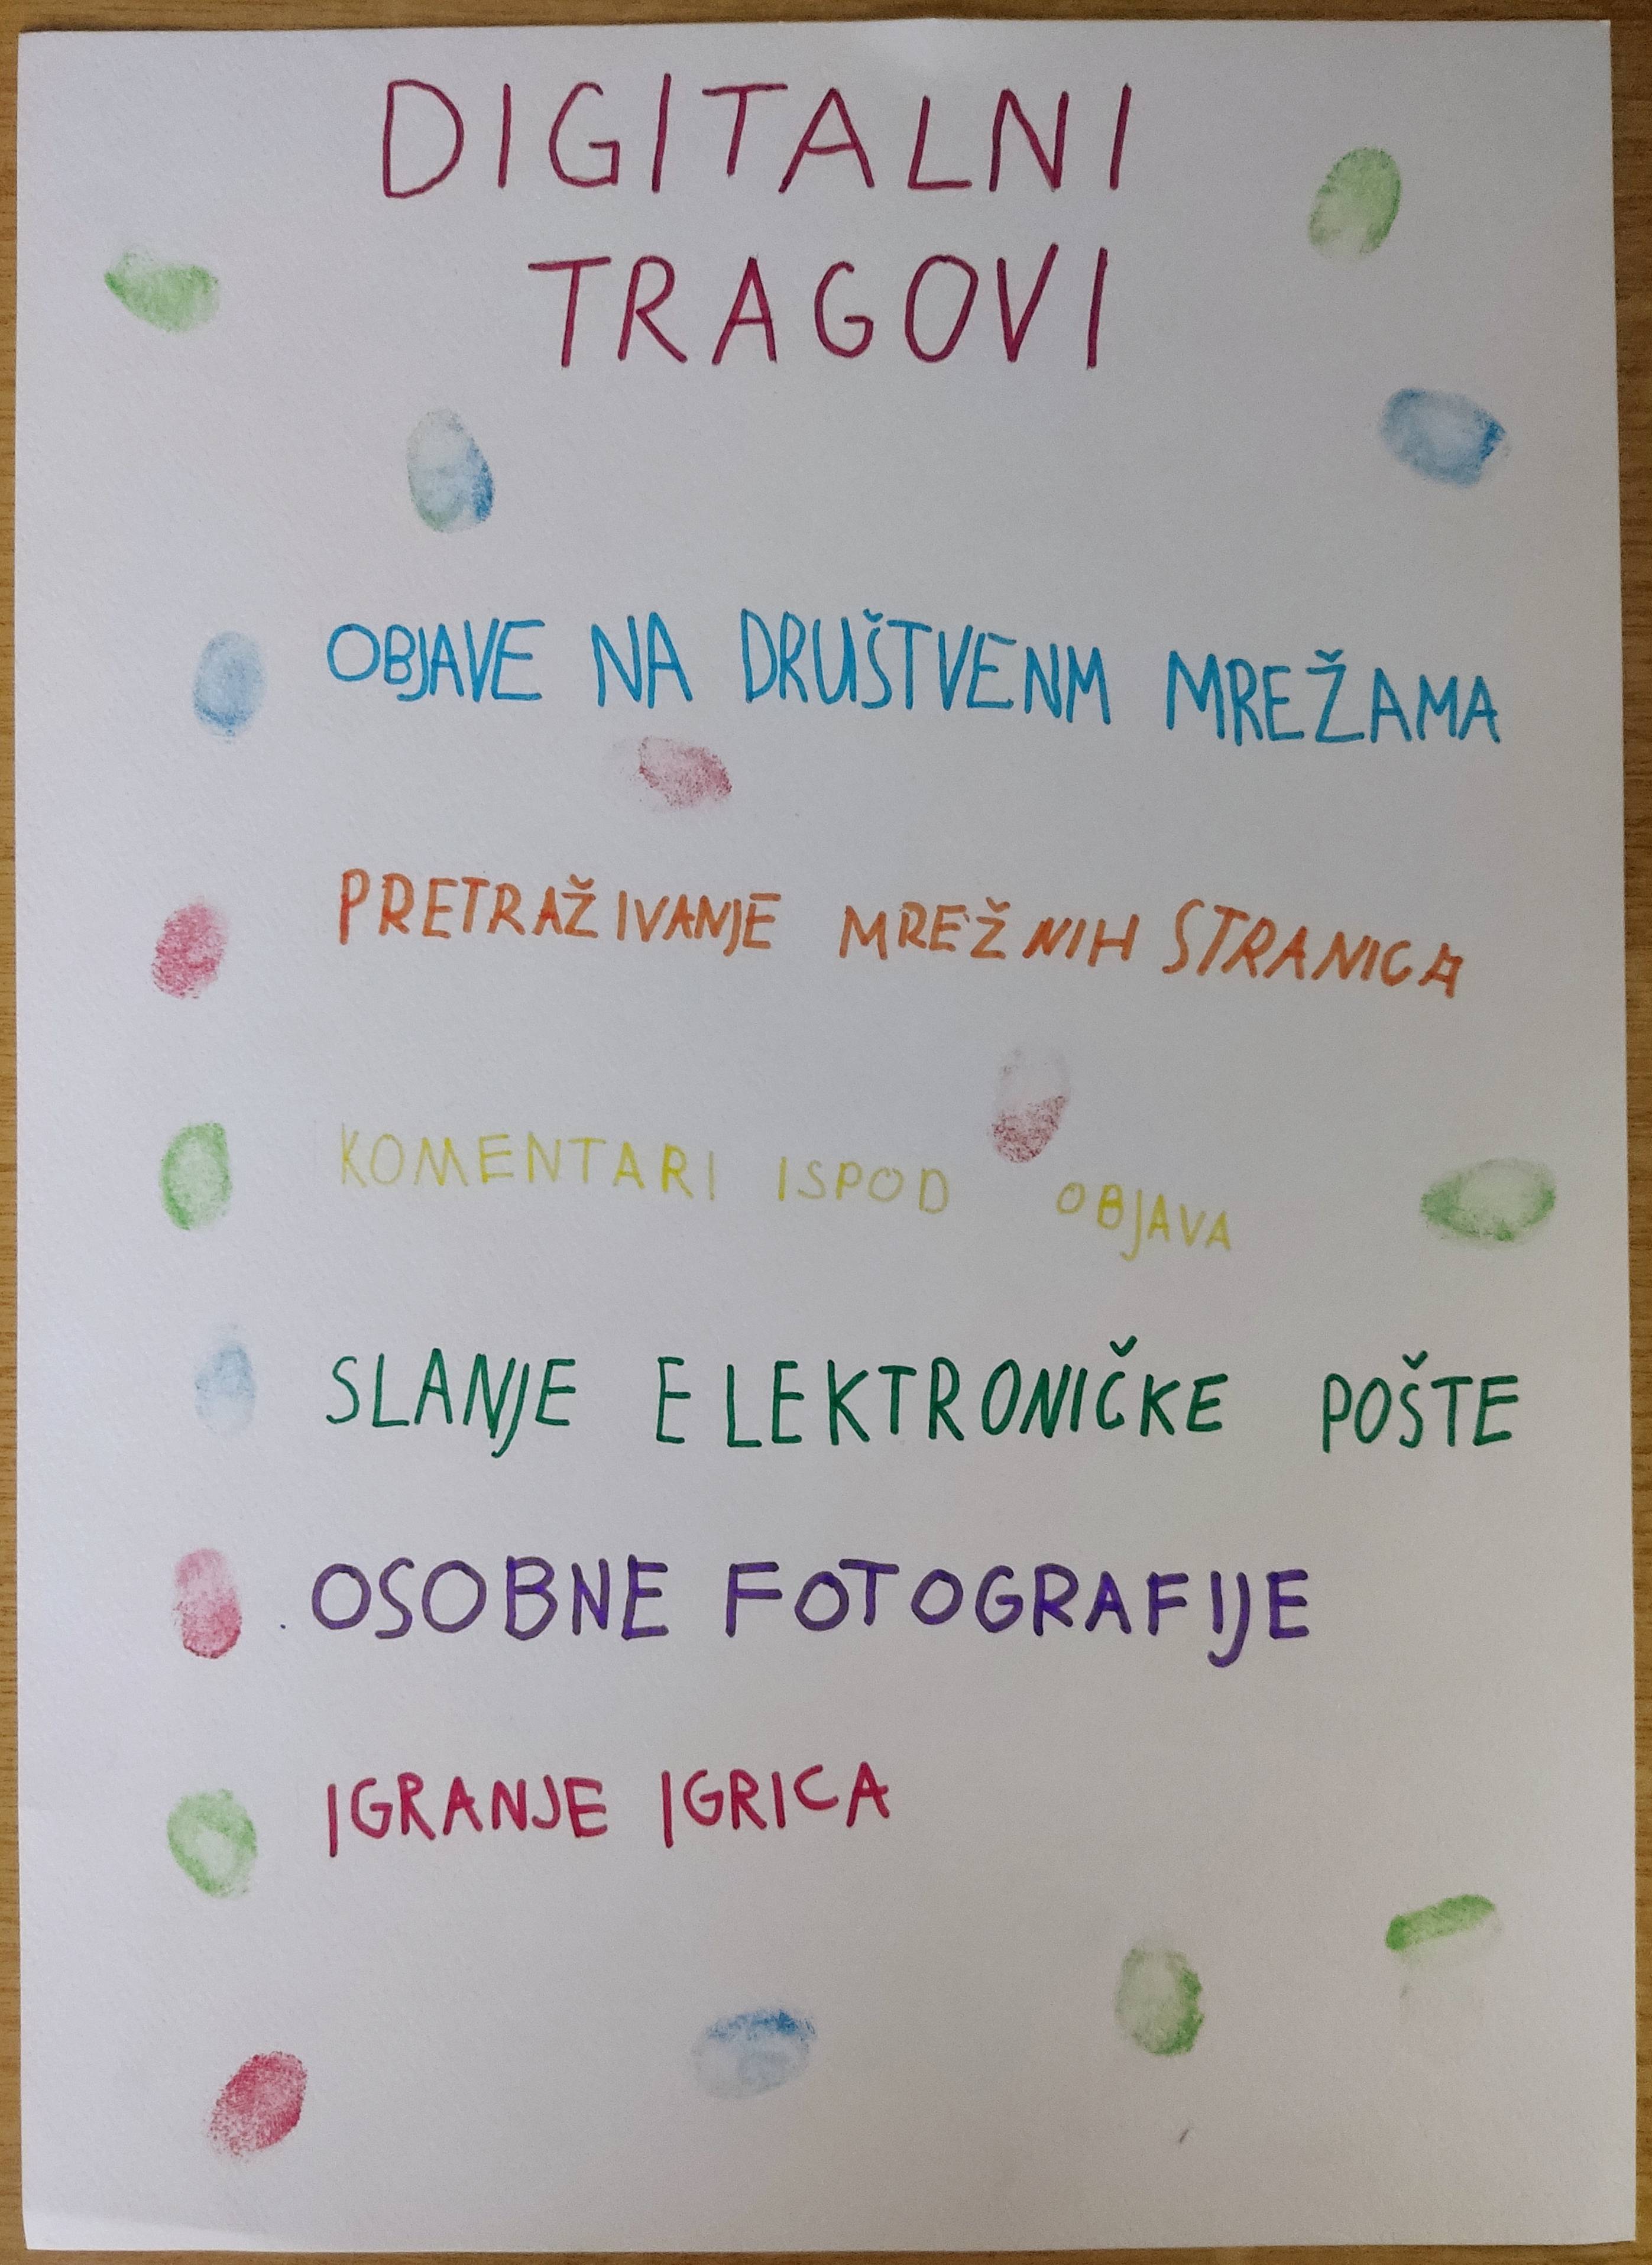 DIGITALNI
TRAGOVI
OBJAVE NA DRUŠTVENM MREŽAMA
PRETRAŽIVANJE MREŽNIH STRANICA
KOMENTARI ISPOD OBJAVA
SLANJE ELEKTRONIČKE POŠTE
OSOBNE FOTOGRAFIJE
IGRANJE IGRICA